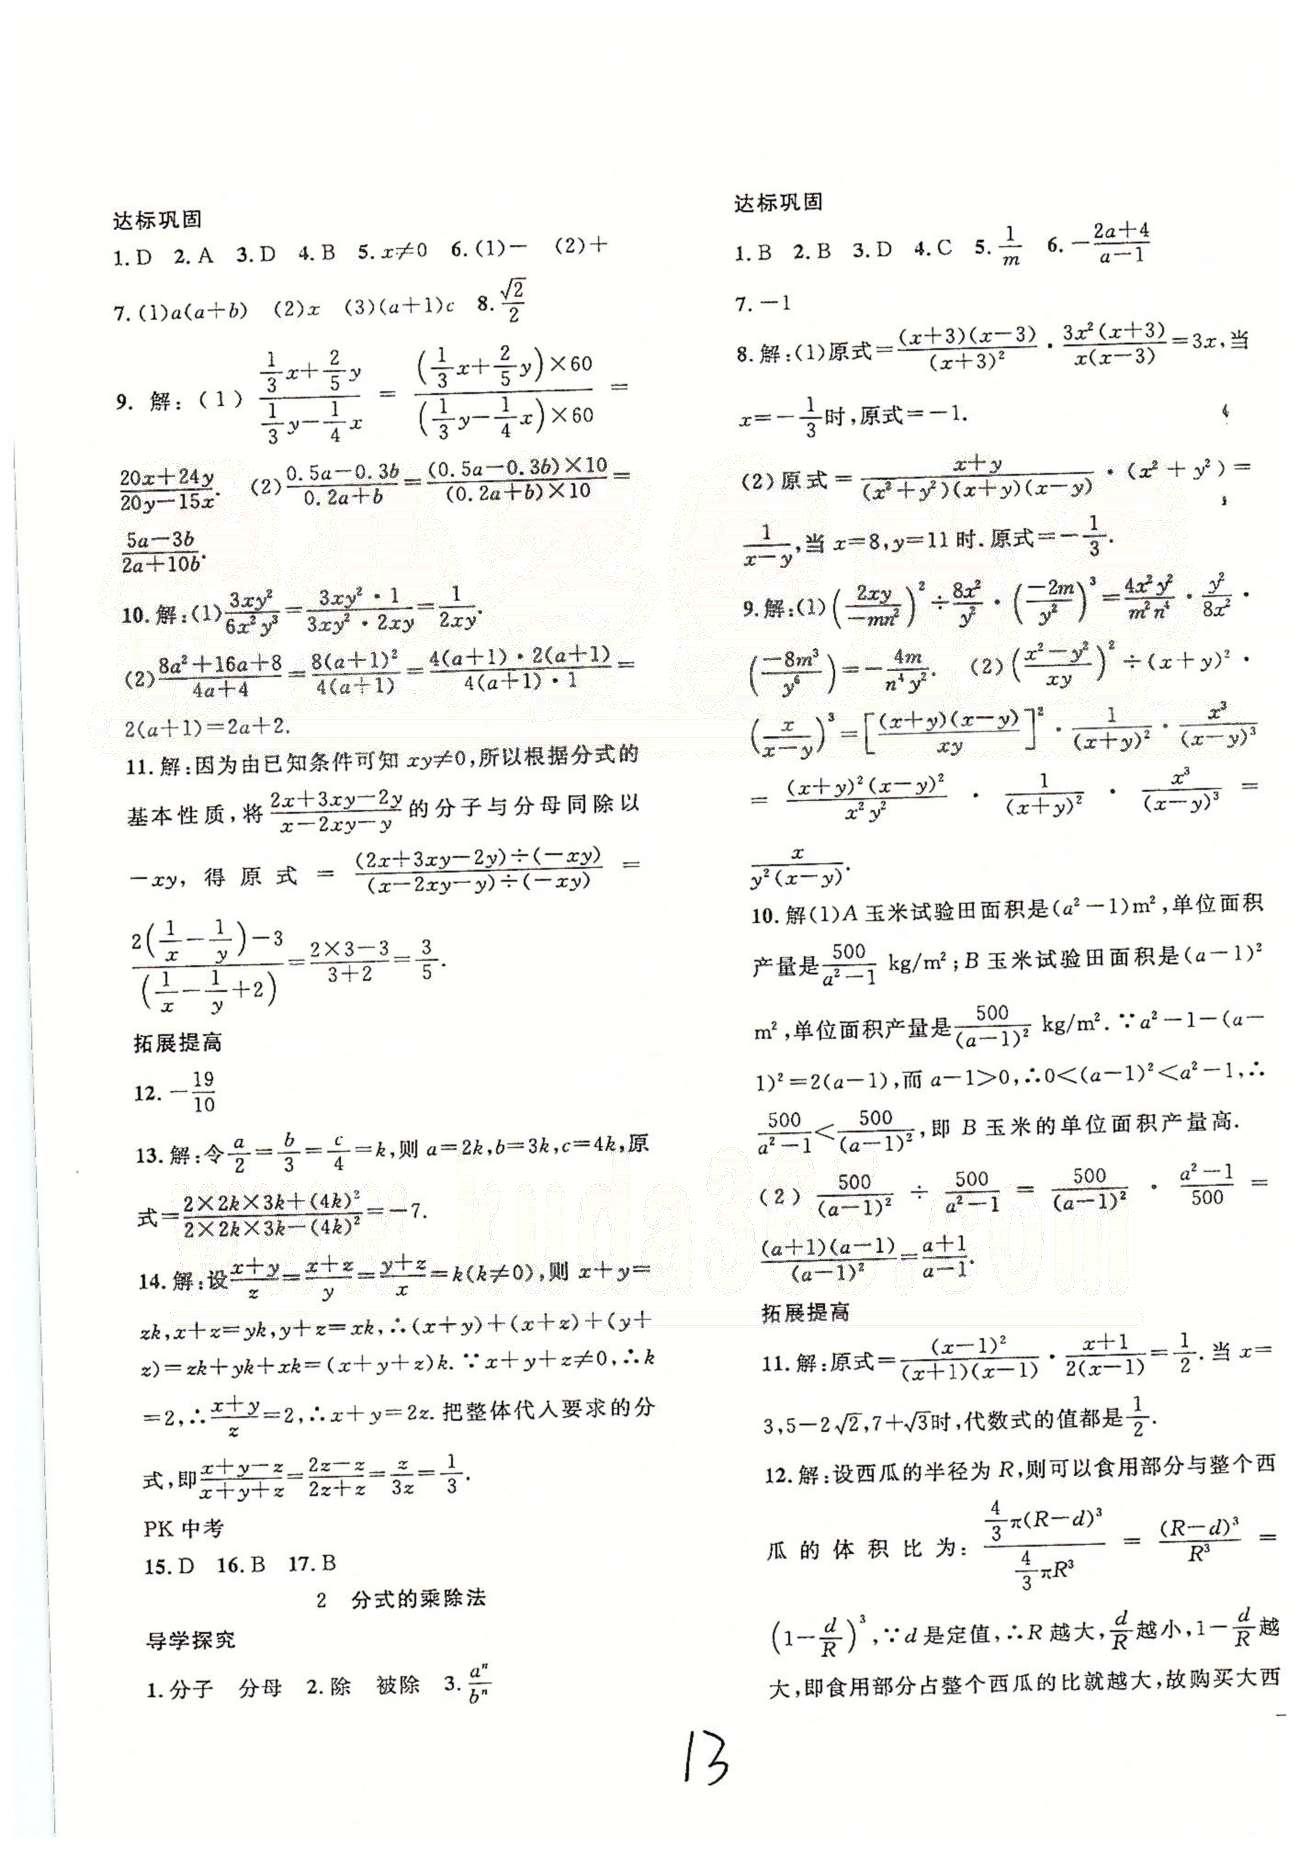 达标巩固
1.D 2.A 3.D 4.B 5.x≠0 6.(1)- (2)+
7.(1)a(a+b) (2)x (3)(a+1)c 8.√2/2
9. 解:(1) (1/3 x+2/5 y)/(1/3 y-1/4 x) = ((1/3 x+2/5 y)×60)/((1/3 y-1/4 x)×60) =
(20x+24y)/(20y-15x). (2)(0.5a-0.3b)/(0.2a+b)=((0.5a-0.3b)×10)/((0.2a+b)×10)=
(5a-3b)/(2a+10b).
10.解:(1)3xy²/6x²y³=(3xy²·1)/(3xy²·2xy)=1/2xy.
(2)(8a²+16a+8)/(4a+4)=8(a+1)²/4(a+1)=(4(a+1)·2(a+1))/(4(a+1)·1)=
2(a+1)=2a+2.
11.解:因为由已知条件可知 xy≠0,所以根据分式的
基本性质,将(2x+3xy-2y)/(x-2xy-y)的分子与分母同除以
-xy, 得 原 式 = ((2x+3xy-2y)÷(-xy))/((x-2xy-y)÷(-xy)) =
(2(1/x-1/y)-3)/((1/x-1/y+2))=(2×3-3)/(3+2)=3/5.
拓展提高
12.-19/10
13.解:令a/2=b/3=c/4=k,则 a=2k,b=3k,c=4k,原
式=(2×2k×3k+(4k)²)/(2×2k×3k-(4k)²)=-7.
14.解:设(x+y)/z=(x+z)/y=(y+z)/x=k(k≠0),则 x+y=
zk,x+z=yk,y+z=xk,∴(x+y)+(x+z)+(y+
z)=zk+yk+xk=(x+y+z)k.∵x+y+z≠0,∴k
=2,∴(x+y)/z=2,∴x+y=2z.把整体代入要求的分
式,即(x+y-z)/(x+y+z)=(2z-z)/(2z+z)=z/3z=1/3.
PK 中考
15.D 16.B 17.B
2 分式的乘除法
导学探究
1.分子 分母 2.除 被除 3.aⁿ/bⁿ
达标巩固
1.B 2.B 3.D 4.C 5.1/m 6.-(2a+4)/(a-1)
7.-1
8.解:(1)原式=((x+3)(x-3))/(x+3)²·3x²(x+3)/x(x-3)=3x,当
x=-1/3时,原式=-1.
(2)原式=(x+y)/((x²+y²)(x+y)(x-y))·(x²+y²)=
1/(x-y),当 x=8,y=11 时.原式=-1/3.
9.解:(1)(2xy/-mn²)²÷8x²/y²·(-2m/y²)³=4x²y²/m²n⁴·y²/8x²·
(-8m³/y⁶)=-4m/n⁴y². (2)((x²-y²)/xy)²÷(x+y)²·
(x/(x-y))³=[(x+y)(x-y)/xy]²·1/(x+y)²·x³/(x-y)³
= (x+y)²(x-y)²/x²y² · 1/(x+y)² · x³/(x-y)³ =
x/y²(x-y).
10.解(1)A 玉米试验田面积是(a²-1)m²,单位面积
产量是500/(a²-1) kg/m²;B 玉米试验田面积是(a-1)²
m²,单位面积产量是500/(a-1)² kg/m².∵a²-1-(a-
1)²=2(a-1),而 a-1>0,∴0<(a-1)²<a²-1,∴
500/(a²-1)<500/(a-1)²,即 B 玉米的单位面积产量高.
(2) 500/(a-1)² ÷ 500/(a²-1) = 500/(a-1)² · (a²-1)/500 =
(a+1)(a-1)/(a-1)²=(a+1)/(a-1).
拓展提高
11.解:原式=(x-1)²/((x+1)(x-1))·(x+1)/2(x-1)=1/2.当 x=
3,5-2√2,7+√3时,代数式的值都是1/2.
12.解:设西瓜的半径为 R,则可以食用部分与整个西
瓜 的 体 积 比 为: (4/3 π(R-d)³)/(4/3 πR³) = (R-d)³/R³ =
(1-d/R)³,∵d 是定值,∴R 越大,d/R越小,1-d/R越
大,即食用部分占整个西瓜的比就越大,故购买大西
13